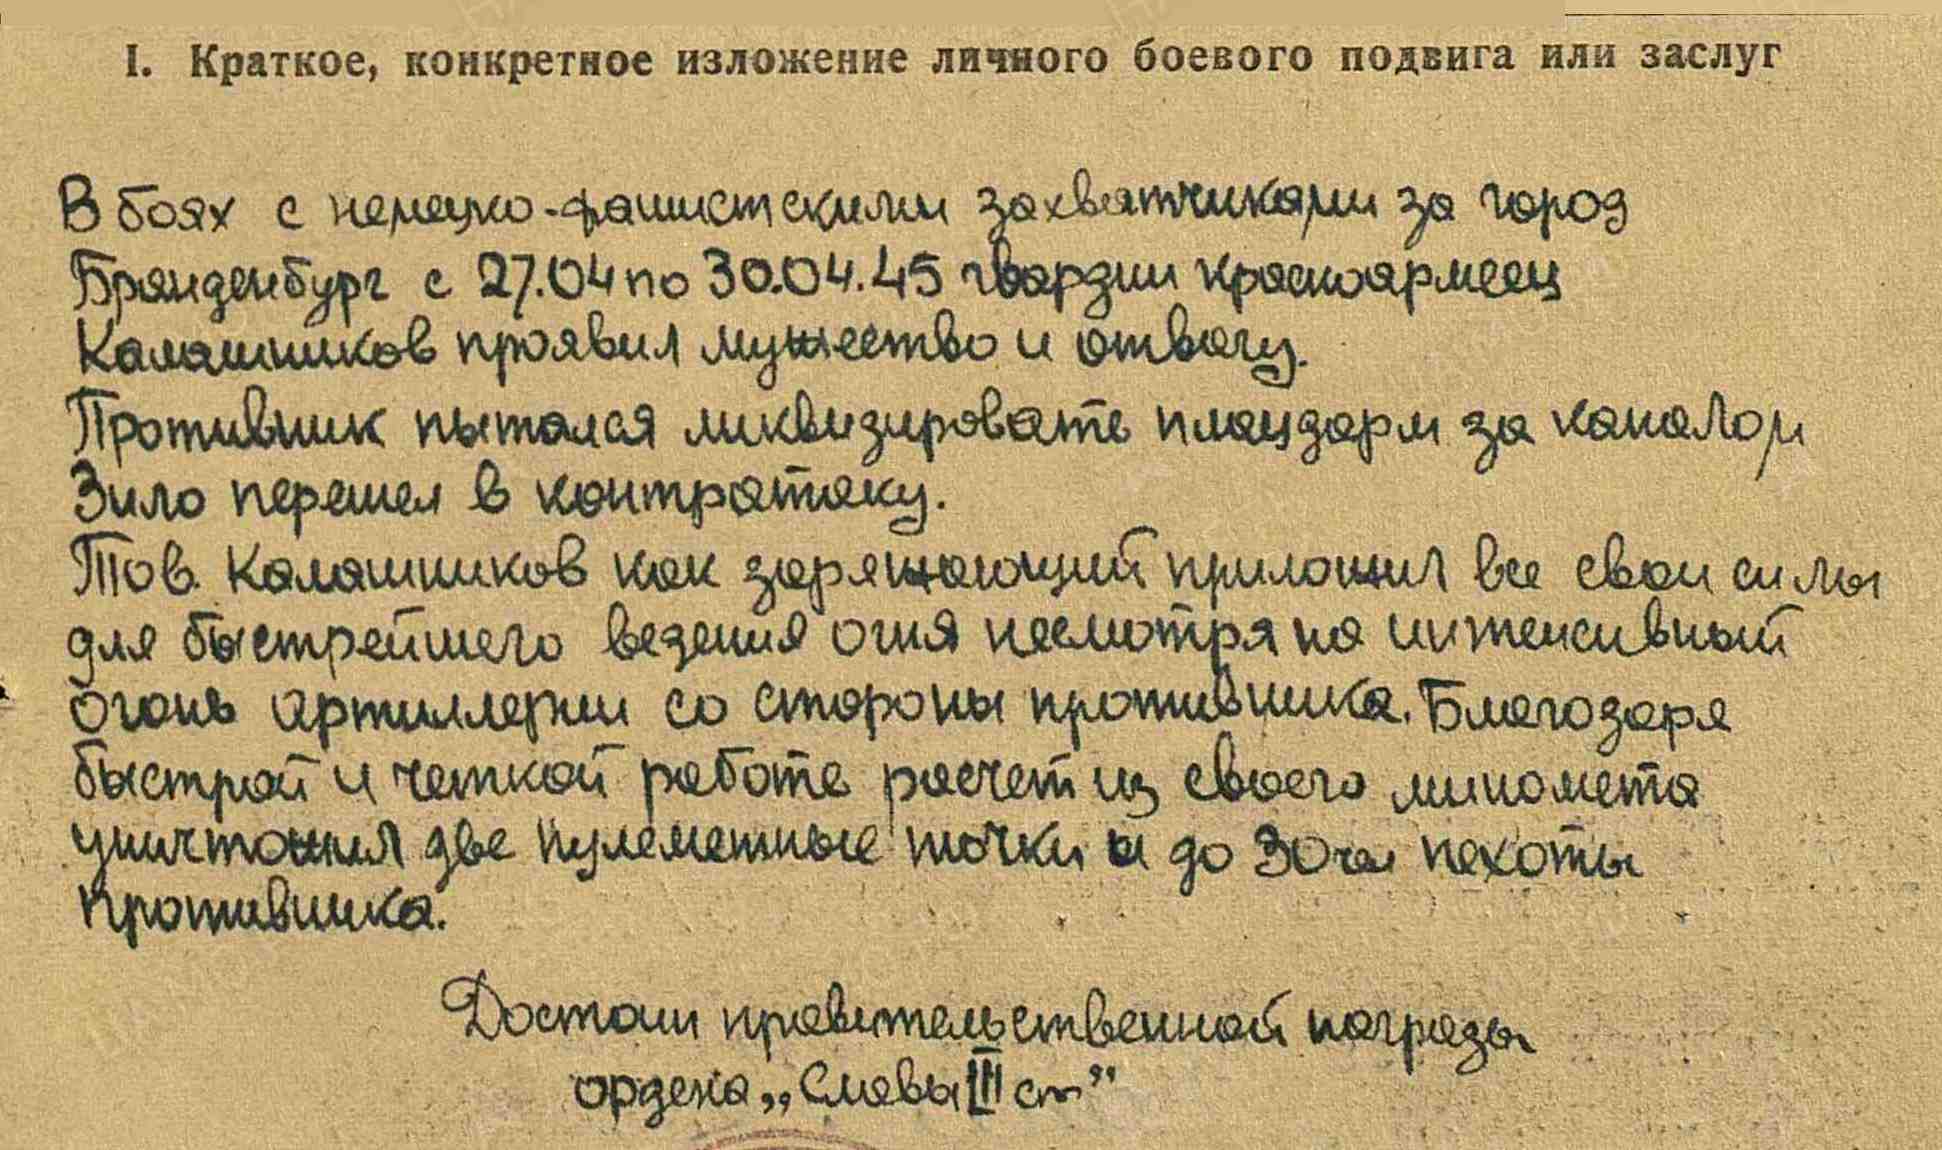 I. Краткое, конкретное изложение личного боевого подвига или заслуг
В боях с немецко-фашистскими захватчиками за город
Бранденбург с 27.04 по 30.04.45 гвардии красноармеец
Калашников проявил мужество и отвагу.
Противник пытался ликвидировать плацдарм за каналом
Зило перешел в контратаку.
Тов. Калашников как заряжающий приложил все свои силы
для быстрейшего ведения огня несмотря на интенсивный
огонь артиллерии со стороны противника. Благодаря
быстрой и четкой работе расчет из своего миномета
уничтожил две пулеметные точки и до 30 чел пехоты
противника.
Достоин правительственной награды
ордена „Славы III ст"